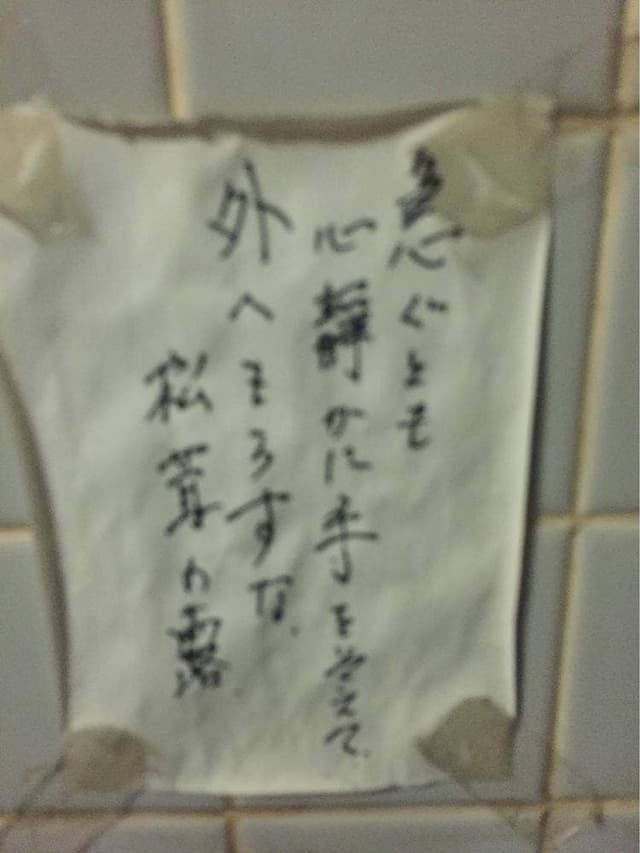 急ぐとも
心静かに手を当えて
外へもらすな
松茸の露